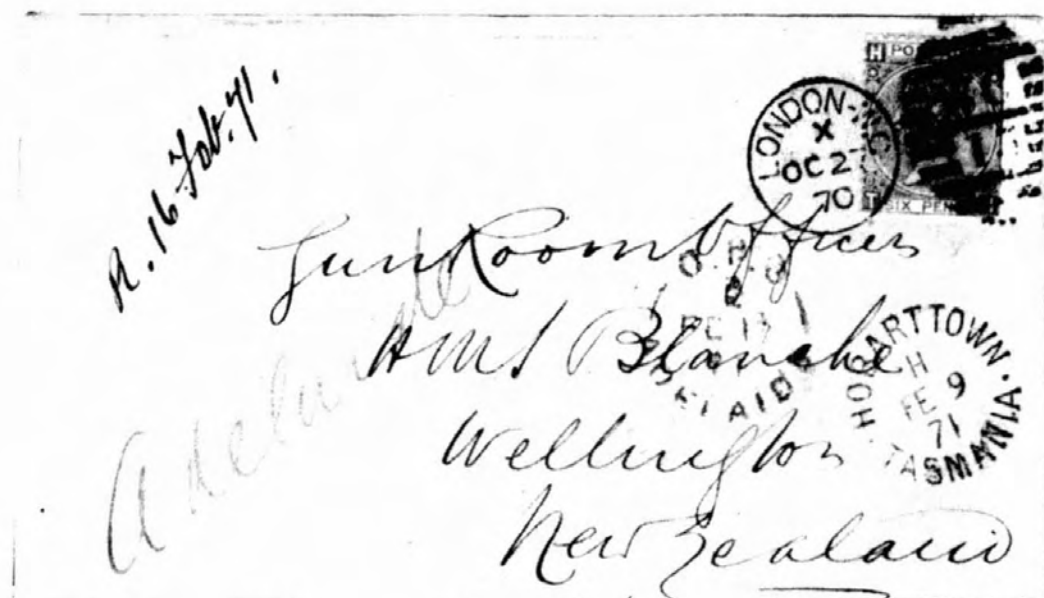 R. 16 Feb. 71.
LONDON. N.C
X
OC 2
70
SIX PEN
Gun Room Officers
HMS Blanche
Wellington
New Zealand
Adelaide
G.P.O
DE 13
ELAID
HOBART TOWN
H
FE 9
71
TASMANIA